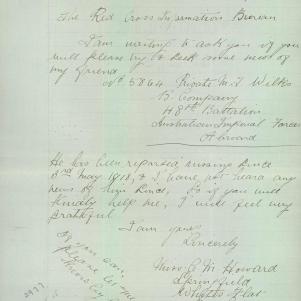 The Red Cross Information Bureau
I am writing to ask you if you
will please try to seek some news of
my friend
No 5864 Private M. J. Wilks
B. Company
48th Battalion
Australian Imperial Forces
Abroad
He has been reported missing since
3rd May 1918, & I have not heard any
news of him since. So if you will
kindly help me, I will feel very
grateful
I am yours
Sincerely
Miss E. M. Howard
Springfield
Flat
If you can,
please let me
know by